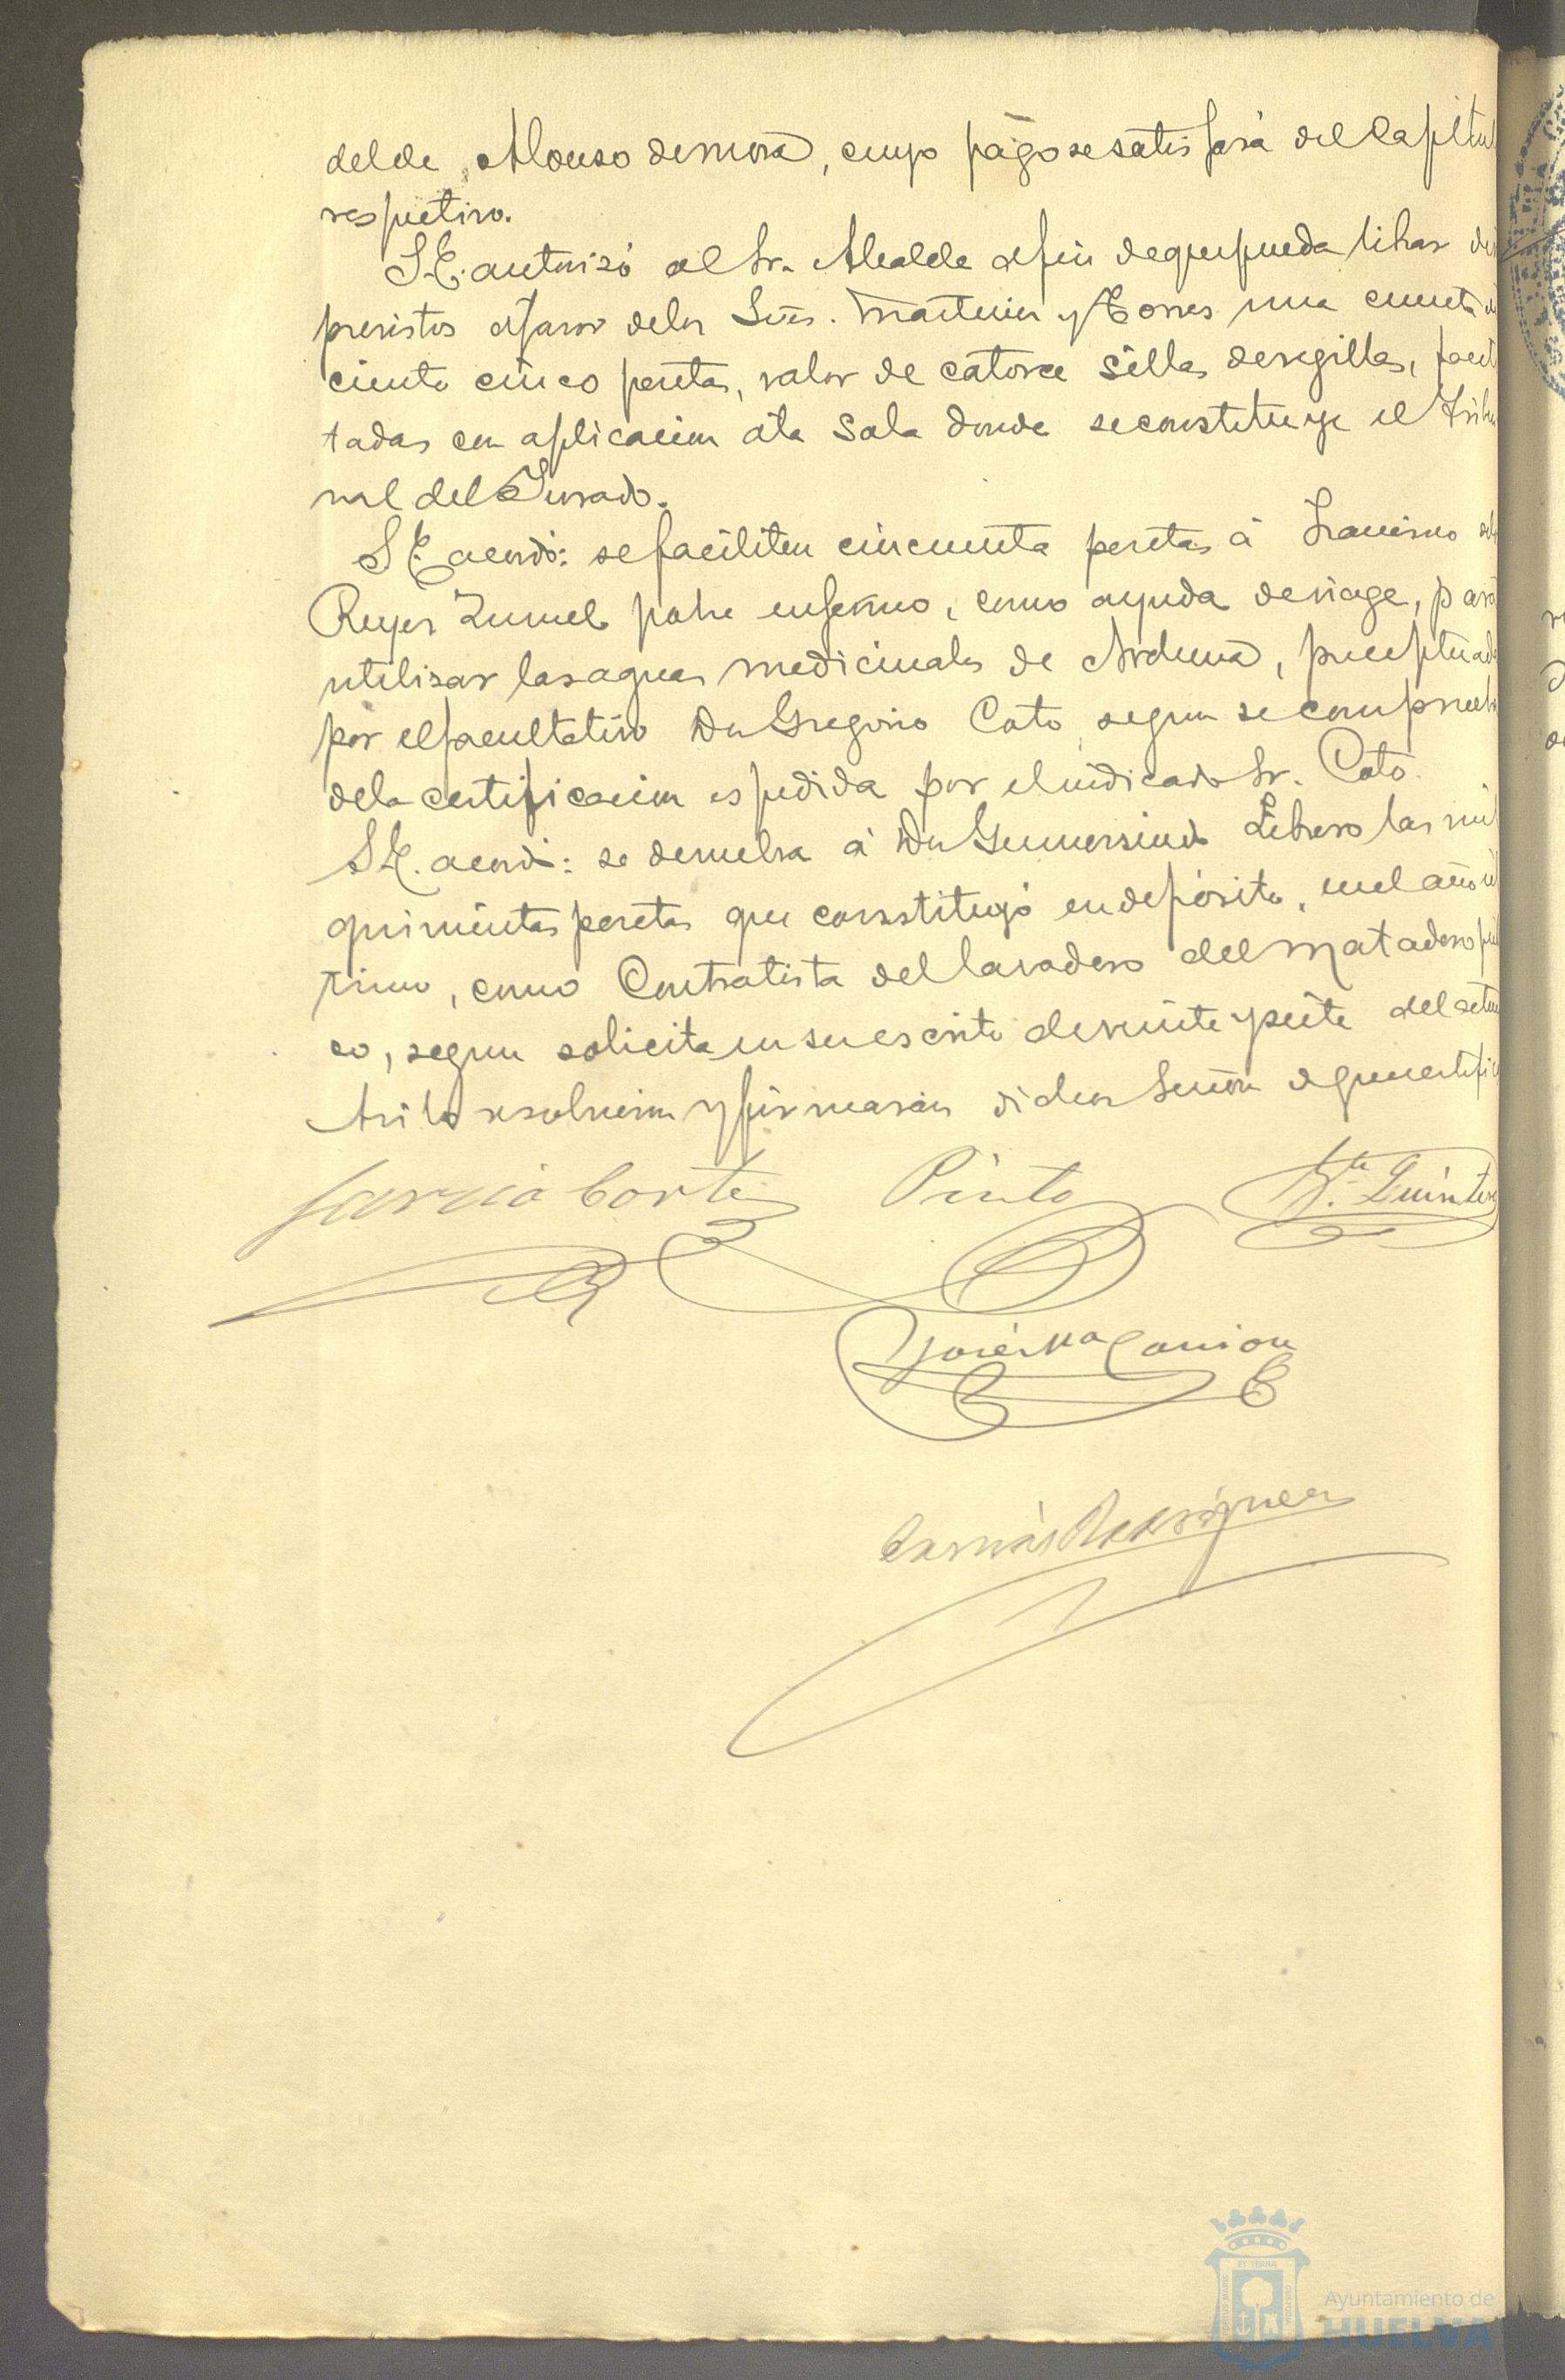 delde, Alonso de mora, cuyo pago se satisfará del Capitul
respectivo.
S.E. autorizó al Sr. Alcalde a fin de que pueda librar de
previstos a favor de los Sres. Martinez y Torres una cuenta de
ciento cinco pesetas, valor de catorce sillas de regilla, facili
tadas con aplicacion a la Sala donde se constituye el Tribu
nal del Jurado.
S.E. acordó: se faciliten cincuenta pesetas á Francisco
Reyes Zumel pobre enfermo, como ayuda de viage, para
utilizar las aguas medicinales de, preceptuada
por el facultativo Dn Gregorio Coto, segun se comprueba
de la certificacion espedida por el indicado Sr. Coto.
S.E. acordó: se devuelva á Dn Gumersindo Librero las mil
quinientas pesetas que constituyó en depósito, en el año úl
timo, como Contratista del lavadero del Matadero públi
co, segun solicita en su escrito de veinte y siete del actual
Asi lo resolvieron y firmaran dichos Señores de que certifico
Garcia Cortes Pinto Quintero
José Ma
Rodriguez
Ayuntamiento de
HUELVA